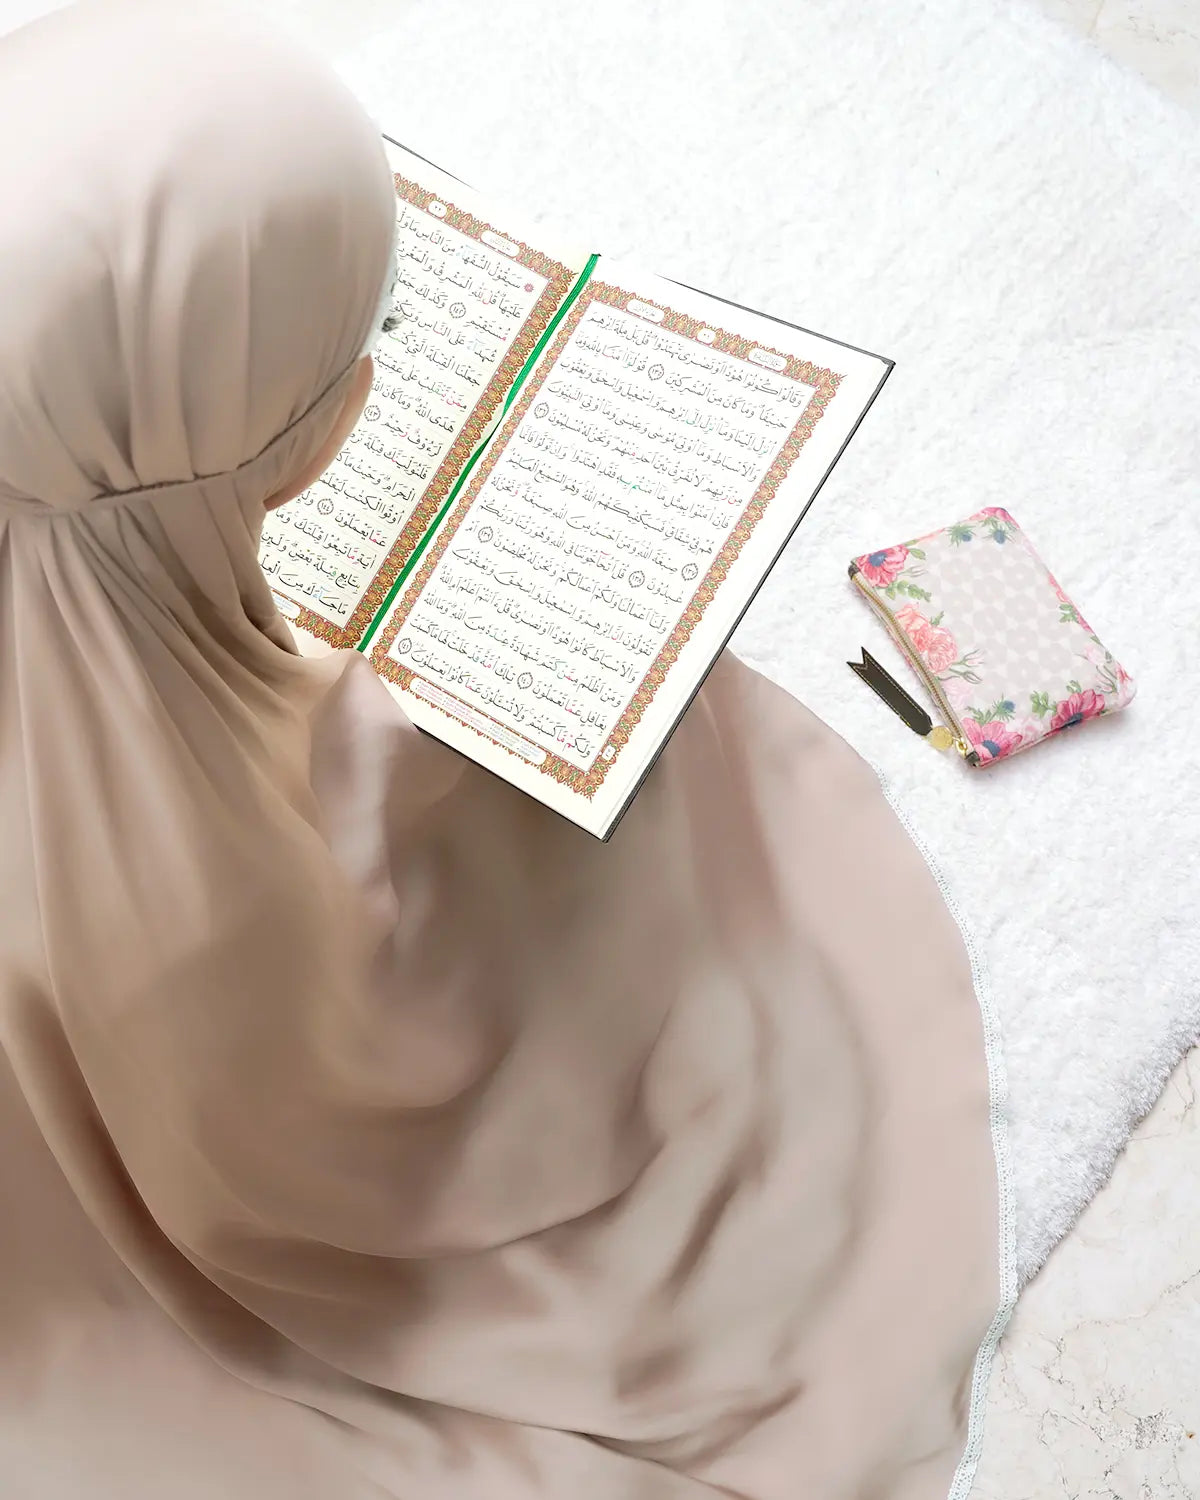 وَقَالُوا۟ كُونُوا۟ هُودًا أَوْ نَصَـٰرَىٰ تَهْتَدُوا۟ قُلْ بَلْ مِلَّةَ إِبْرَٰهِـۧمَ
حَنِيفًا وَمَا كَانَ مِنَ ٱلْمُشْرِكِينَ ١٣٥ قُولُوٓا۟ ءَامَنَّا بِٱللَّهِ وَمَآ
أُنزِلَ إِلَيْنَا وَمَآ أُنزِلَ إِلَىٰٓ إِبْرَٰهِـۧمَ وَإِسْمَـٰعِيلَ وَإِسْحَـٰقَ وَيَعْقُوبَ
وَٱلْأَسْبَاطِ وَمَآ أُوتِىَ مُوسَىٰ وَعِيسَىٰ وَمَآ أُوتِىَ ٱلنَّبِيُّونَ
مِن رَّبِّهِمْ لَا نُفَرِّقُ بَيْنَ أَحَدٍ مِّنْهُمْ وَنَحْنُ لَهُۥ مُسْلِمُونَ ١٣٦
فَإِنْ ءَامَنُوا۟ بِمِثْلِ مَآ ءَامَنتُم بِهِۦ فَقَدِ ٱهْتَدَوا۟ وَّإِن تَوَلَّوْا۟ فَإِنَّمَا
هُمْ فِى شِقَاقٍ فَسَيَكْفِيكَهُمُ ٱللَّهُ وَهُوَ ٱلسَّمِيعُ ٱلْعَلِيمُ
١٣٧ صِبْغَةَ ٱللَّهِ وَمَنْ أَحْسَنُ مِنَ ٱللَّهِ صِبْغَةً وَنَحْنُ لَهُۥ
عَـٰبِدُونَ ١٣٨ قُلْ أَتُحَآجُّونَنَا فِى ٱللَّهِ وَهُوَ رَبُّنَا وَرَبُّكُمْ
وَلَنَآ أَعْمَـٰلُنَا وَلَكُمْ أَعْمَـٰلُكُمْ وَنَحْنُ لَهُۥ مُخْلِصُونَ ١٣٩ أَمْ
تَقُولُونَ إِنَّ إِبْرَٰهِـۧمَ وَإِسْمَـٰعِيلَ وَإِسْحَـٰقَ وَيَعْقُوبَ
وَٱلْأَسْبَاطَ كَانُوا۟ هُودًا أَوْ نَصَـٰرَىٰ قُلْ ءَأَنتُمْ أَعْلَمُ أَمِ ٱللَّهُ
وَمَنْ أَظْلَمُ مِمَّن كَتَمَ شَهَـٰدَةً عِندَهُۥ مِنَ ٱللَّهِ وَمَا ٱللَّهُ
بِغَـٰفِلٍ عَمَّا تَعْمَلُونَ ١٤٠ تِلْكَ أُمَّةٌ قَدْ خَلَتْ لَهَا مَا كَسَبَتْ
وَلَكُم مَّا كَسَبْتُمْ وَلَا تُسْـَٔلُونَ عَمَّا كَانُوا۟ يَعْمَلُونَ ١٤١
سَيَقُولُ ٱلسُّفَهَآءُ مِنَ ٱلنَّاسِ مَا وَلَّ
عَلَيْهَا قُل لِّلَّهِ ٱلْمَشْرِقُ وَٱلْمَغْرِبُ
مُّسْتَقِيمٍ ١٤٢ وَكَذَٰلِكَ جَعَلْ
شُهَدَآءَ عَلَى ٱلنَّاسِ وَيَكُونَ
جَعَلْنَا ٱلْقِبْلَةَ ٱلَّتِى كُنتَ
مِمَّن يَنقَلِبُ عَلَىٰ عَقِبَيْهِ
هَدَى ٱللَّهُ وَمَا كَانَ ٱللَّهُ
لَرَءُوفٌ رَّحِيمٌ ١٤٣
فَلَنُوَلِّيَنَّكَ قِبْلَةً تَرْ
ٱلْحَرَامِ وَحَيْثُ مَا كُ
أُوتُوا۟ ٱلْكِتَـٰبَ لَيَعْلَمُ
عَمَّا يَعْمَلُونَ ١٤٤ وَلَ
ءَايَةٍ مَّا تَبِعُوا۟ قِبْلَتَكَ وَمَآ
بِتَابِعٍ قِبْلَةَ بَعْضٍ وَلَئِنِ
مَا جَآءَكَ مِنَ ٱلْعِلْ